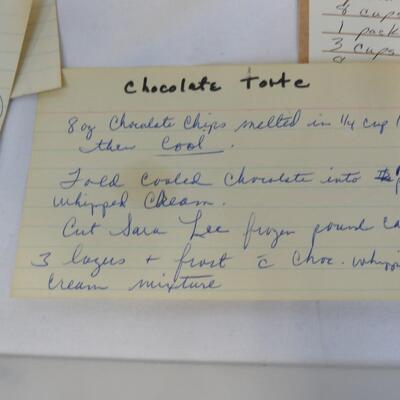 8 cups
1 pack
3 cups
Chocolate Torte
8 oz Chocolate Chips melted in 1/4 cup
then Cool.
Fold cooled chocolate into
whipped cream.
Cut Sara Lee frozen pound ca
3 layers + frost c̄ choc. whipp
cream mixture